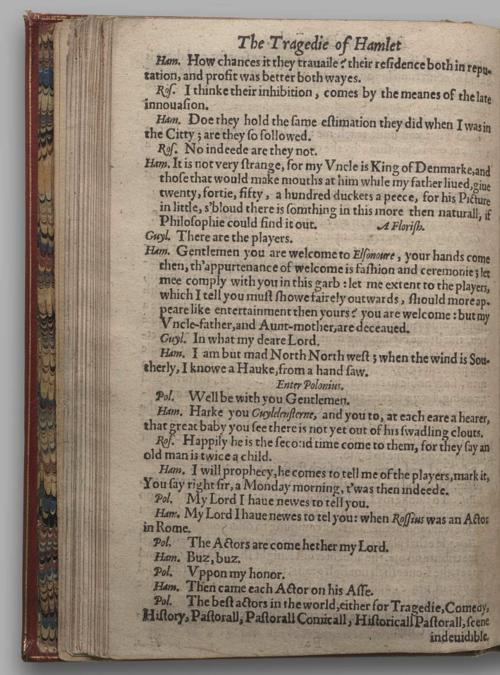 The Tragedie of Hamlet
Ham. How chances it they trauaile? their residence both in repu-
tation, and profit was better both wayes.
Ros. I thinke their inhibition, comes by the meanes of the late
innouasion.
Ham. Doe they hold the same estimation they did when I was in
the Citty; are they so followed.
Ros. No indeede are they not.
Ham. It is not very strange, for my Vncle is King of Denmarke, and
those that would make mouths at him while my father liued, giue
twenty, fortie, fifty, a hundred duckets a peece, for his Picture
in little, s'bloud there is somthing in this more then naturall, if
Philosophie could find it out. A Florish.
Guyl. There are the players.
Ham. Gentlemen you are welcome to Elsonoure, your hands come
then, th'appurtenance of welcome is fashion and ceremonie; let
mee comply with you in this garb: let me extent to the players,
which I tell you must showe fairely outwards, should more ap-
peare like entertainment then yours? you are welcome: but my
Vncle-father, and Aunt-mother, are deceaued.
Guyl. In what my deare Lord.
Ham. I am but mad North North west; when the wind is Sou-
therly, I knowe a Hauke, from a hand saw.
Enter Polonius.
Pol. Well be with you Gentlemen.
Ham. Harke you Guyldensterne, and you to, at each eare a hearer,
that great baby you see there is not yet out of his swadling clouts.
Ros. Happily he is the second time come to them, for they say an
old man is twice a child.
Ham. I will prophecy, he comes to tell me of the players, mark it,
You say right sir, a Monday morning, t'was then indeede.
Pol. My Lord I haue newes to tell you.
Ham. My Lord I haue newes to tel you: when Rossius was an Actor
in Rome.
Pol. The Actors are come hether my Lord.
Ham. Buz, buz.
Pol. Vppon my honor.
Ham. Then came each Actor on his Asse.
Pol. The best actors in the world, either for Tragedie, Comedy,
History, Pastorall, Pastorall Comicall, Historicall Pastorall, scene
indeuidible.